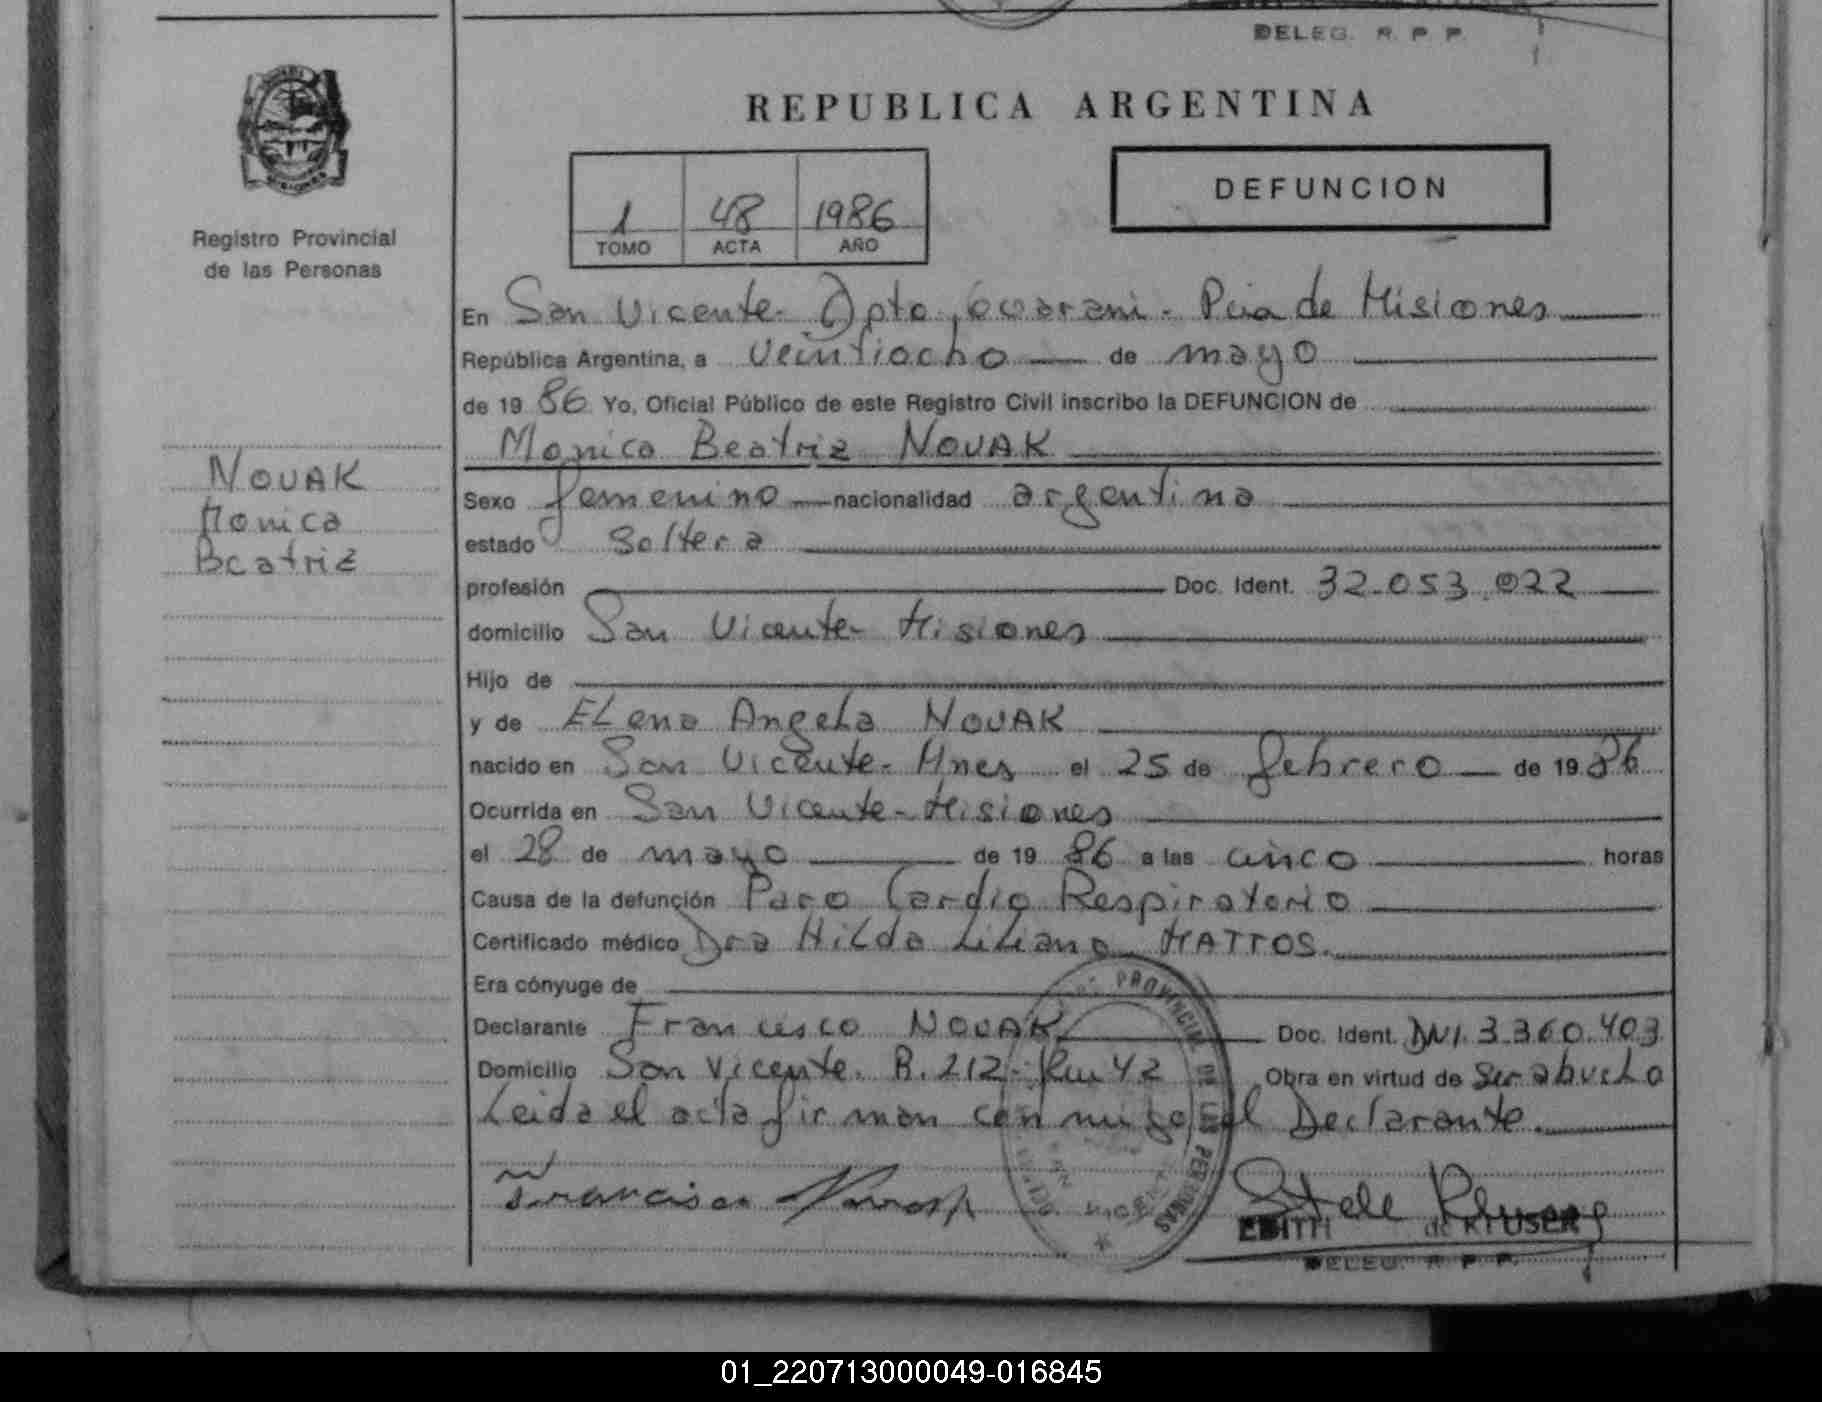 DELEG. R. P. P.
REPUBLICA ARGENTINA
DEFUNCION
1 48 1986
TOMO ACTA AÑO
Registro Provincial
de las Personas
NOVAK
Monica
Beatriz
En San Vicente- Dpto Guarani- Pcia de Misiones
República Argentina, a veintiocho de mayo
de 1986 Yo, Oficial Público de este Registro Civil inscribo la DEFUNCION de
Monica Beatriz NOVAK
Sexo femenino nacionalidad argentina
estado soltera
profesión Doc. Ident. 32.053.022
domicilio San Vicente- Misiones
Hijo de
y de ELena AngeLa NOVAK
nacido en San Vicente- Mnes el 25 de febrero de 1986
Ocurrida en San Vicente- Misiones
el 28 de mayo de 1986 a las cinco horas
Causa de la defunción Paro Cardio Respiratorio
Certificado médico Dra HiLda LiLiana MATTOS.
Era cónyuge de
Declarante Francisco NOVAK Doc. Ident. DNI. 3.360.403
Domicilio San Vicente. R. 212- Km 42 Obra en virtud de ser abueLo
Leida el acta firman conmigo el Declarante.
Francisco Novak
PROVINCIAL DE LAS PERSONAS
EDITH de KRUSER
DELEG. R. P. P.
01_220713000049-016845